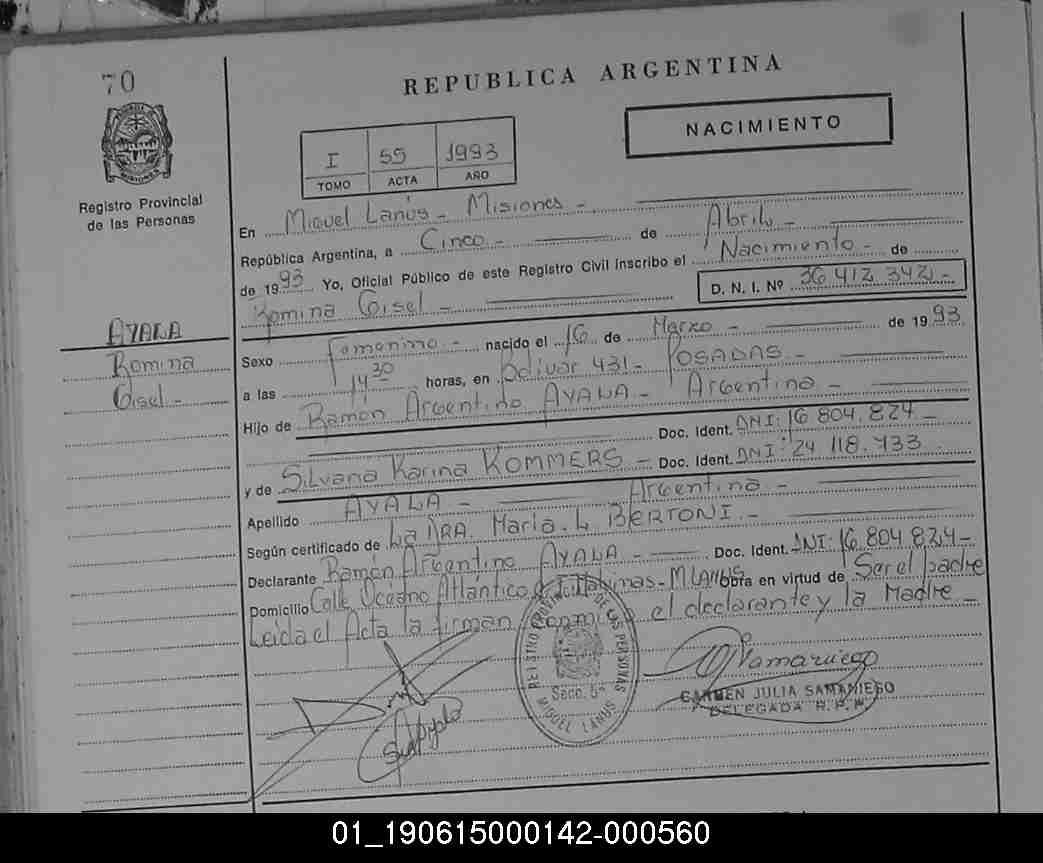 70
REPUBLICA ARGENTINA
NACIMIENTO
I 55 1993
TOMO ACTA AÑO
Registro Provincial
de las Personas
En Miguel Lanús - Misiones -
República Argentina, a Cinco - de Abril -
de 1993 Yo, Oficial Público de este Registro Civil inscribo el Nacimiento - de
Romina Gisel - D. N. I. Nº 36 412 342 -
AYALA
Romina
Gisel -
Sexo Femenino - nacido el 16 de Marzo - de 1993
a las 14 30 horas, en Bolivar 431 - POSADAS -
Hijo de Ramón Argentino AYALA - Argentina -
Doc. Ident. DNI: 16 804.824 -
y de Silvana Karina KOMMERS - Doc. Ident. DNI: 24 118.733
Argentina -
Apellido AYALA -
Según certificado de La DRA. María. L. BERTONI. -
Declarante Ramón Argentino AYALA - Doc. Ident. DNI: 16 804 824 -
Domicilio Calle Oceano Atlántico Malvinas - M LANUS obra en virtud de Ser el padre
Leida el Acta la firman conmigo el declarante y la Madre -
REGISTRO PROVINCIAL DE LAS PERSONAS
Secc. 5ª
MIGUEL LANUS
CARMEN JULIA SAMANIEGO
DELEGADA R.P.P.
01_190615000142-000560